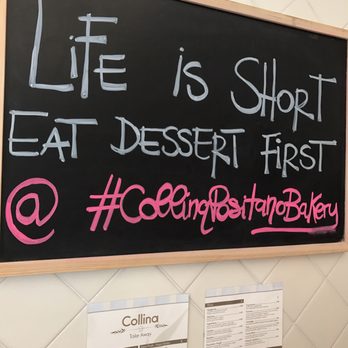 LiFE is SHORT
EAT DESSERT FiRST
@ #CollinaPositanoBakery
Collina
Take Away